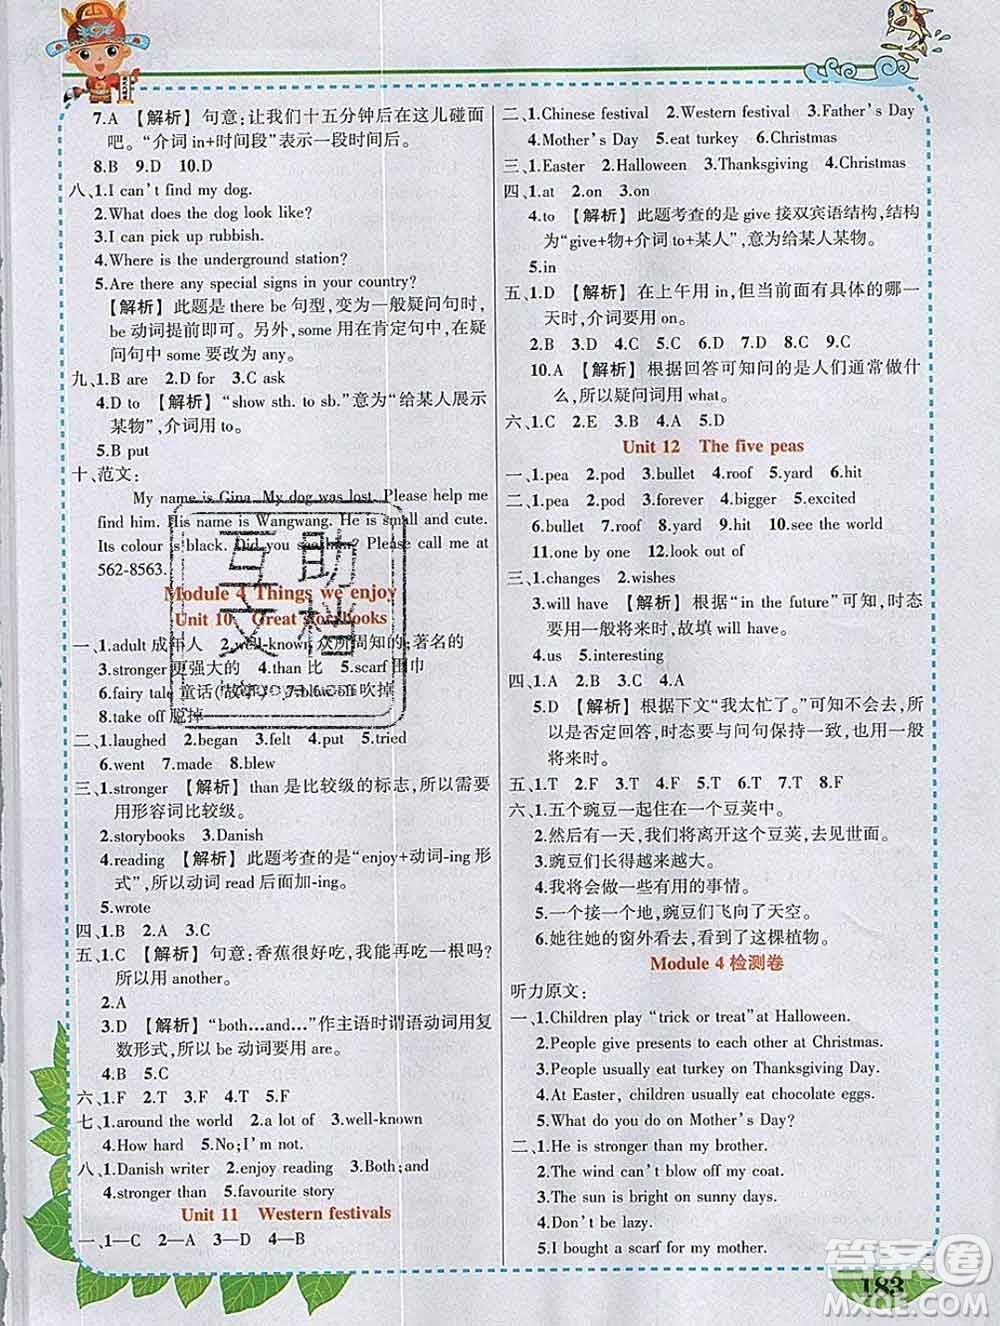 7.A 【解析】 句意:让我们十五分钟后在这儿碰面
吧。“介词in+时间段”表示一段时间后。
8.B 9.D 10.D
八、1.I can't find my dog.
2.What does the dog look like?
3.I can pick up rubbish.
4.Where is the underground station?
5.Are there any special signs in your country?
【解析】 此题是there be句型,变为一般疑问句时,
be动词提前即可。另外,some用在肯定句中,在疑
问句中some要改为any。
九、1.B are 2.D for 3.C ask
4.D to 【解析】“show sth. to sb.”意为“给某人展示
某物”,介词用to。
5.B put
十、范文:
My name is Gina. My dog was lost. Please help me
find him. His name is Wangwang. He is small and cute.
Its colour is black. Did you see him? Please call me at
562-8563.
Module 4 Things we enjoy
Unit 10 Great storybooks
一、1.adult 成年人 2.well-known 众所周知的;著名的
3.stronger 更强大的 4.than 比 5.scarf 围巾
6.fairy tale 童话(故事) 7.blow off 吹掉
8.take off 脱掉
二、1.laughed 2.began 3.felt 4.put 5.tried
6.went 7.made 8.blew
三、1.stronger 【解析】than是比较级的标志,所以需要
用形容词比较级。
2.storybooks 3.Danish
4.reading 【解析】 此题考查的是“enjoy+动词-ing形
式”,所以动词read后面加-ing。
5.wrote
四、1.B 2.A 3.C
五、1.C 【解析】 句意:香蕉很好吃,我能再吃一根吗?
所以用another。
2.A
3.D 【解析】“both...and...”作主语时谓语动词用复
数形式,所以be动词要用are。
4.B 5.C
六、1.F 2.T 3.F 4.T 5.F
七、1.around the world 2.a lot of 3.well-known
4.How hard 5.No;I'm not.
八、1.Danish writer 2.enjoy reading 3.Both;and
4.stronger than 5.favourite story
Unit 11 Western festivals
一、1—C 2—A 3—D 4—B
二、1.Chinese festival 2.Western festival 3.Father's Day
4.Mother's Day 5.eat turkey 6.Christmas
三、1.Easter 2.Halloween 3.Thanksgiving 4.Christmas
四、1.at 2.on 3.on
4.to 【解析】 此题考查的是give接双宾语结构,结构
为“give+物+介词to+某人”,意为给某人某物。
5.in
五、1.D 【解析】 在上午用in,但当前面有具体的哪一
天时,介词要用on。
2.B 3.D 4.C 5.C 6.D 7.C 8.C 9.C
10.A 【解析】 根据回答可知问的是人们通常做什
么,所以疑问词用what。
六、1.C 2.E 3.B 4.A 5.D
Unit 12 The five peas
一、1.pea 2.pod 3.bullet 4.roof 5.yard 6.hit
二、1.pea 2.pod 3.forever 4.bigger 5.excited
6.bullet 7.roof 8.yard 9.hit 10.see the world
11.one by one 12.look out of
三、1.changes 2.wishes
3.will have 【解析】 根据“in the future”可知,时态
要用一般将来时,故填will have。
4.us 5.interesting
四、1.D 2.C 3.A 4.A
5.D 【解析】 根据下文“我太忙了。”可知此处应
是否定回答,时态要与问句保持一致,也用一般
将来时。
五、1.T 2.F 3.F 4.T 5.T 6.F 7.T 8.F
六、1.五个豌豆一起住在一个豆荚中。
2.然后有一天,我们将离开这个豆荚,去见世面。
3.豌豆们长得越来越大。
4.我将会做一些有用的事情。
5.一个接一个地,豌豆们飞向了天空。
6.她往她的窗外看去,看到了这棵植物。
Module 4 检测卷
听力原文:
一、1.Children play “trick or treat”at Halloween.
2.People give presents to each other at Christmas.
3.People usually eat turkey on Thanksgiving Day.
4.At Easter, children usually eat chocolate eggs.
5.What do you do on Mother's Day?
二、1.He is stronger than my brother.
2.The wind can't blow off my coat.
3.The sun is bright on sunny days.
4.Don't be lazy.
5.I bought a scarf for my mother.
183
互助文档
答案圈
MXQE.COM